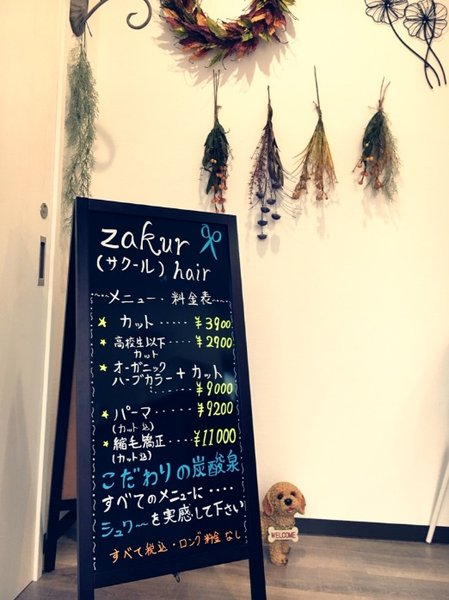 zakur
(サクール) hair
メニュー・料金表
★ カット・・・・・¥3900
★ 高校生以下・・・・¥2900
カット
★ オーガニック
ハーブカラー + カット
¥9000
★ パーマ・・・・・¥9200
(カット込)
★ 縮毛矯正・・・・¥11000
(カット込)
こだわりの炭酸泉
すべてのメニューに・・・・
シュワ〜を実感して下さい
すべて税込・ロング料金なし
WELCOME